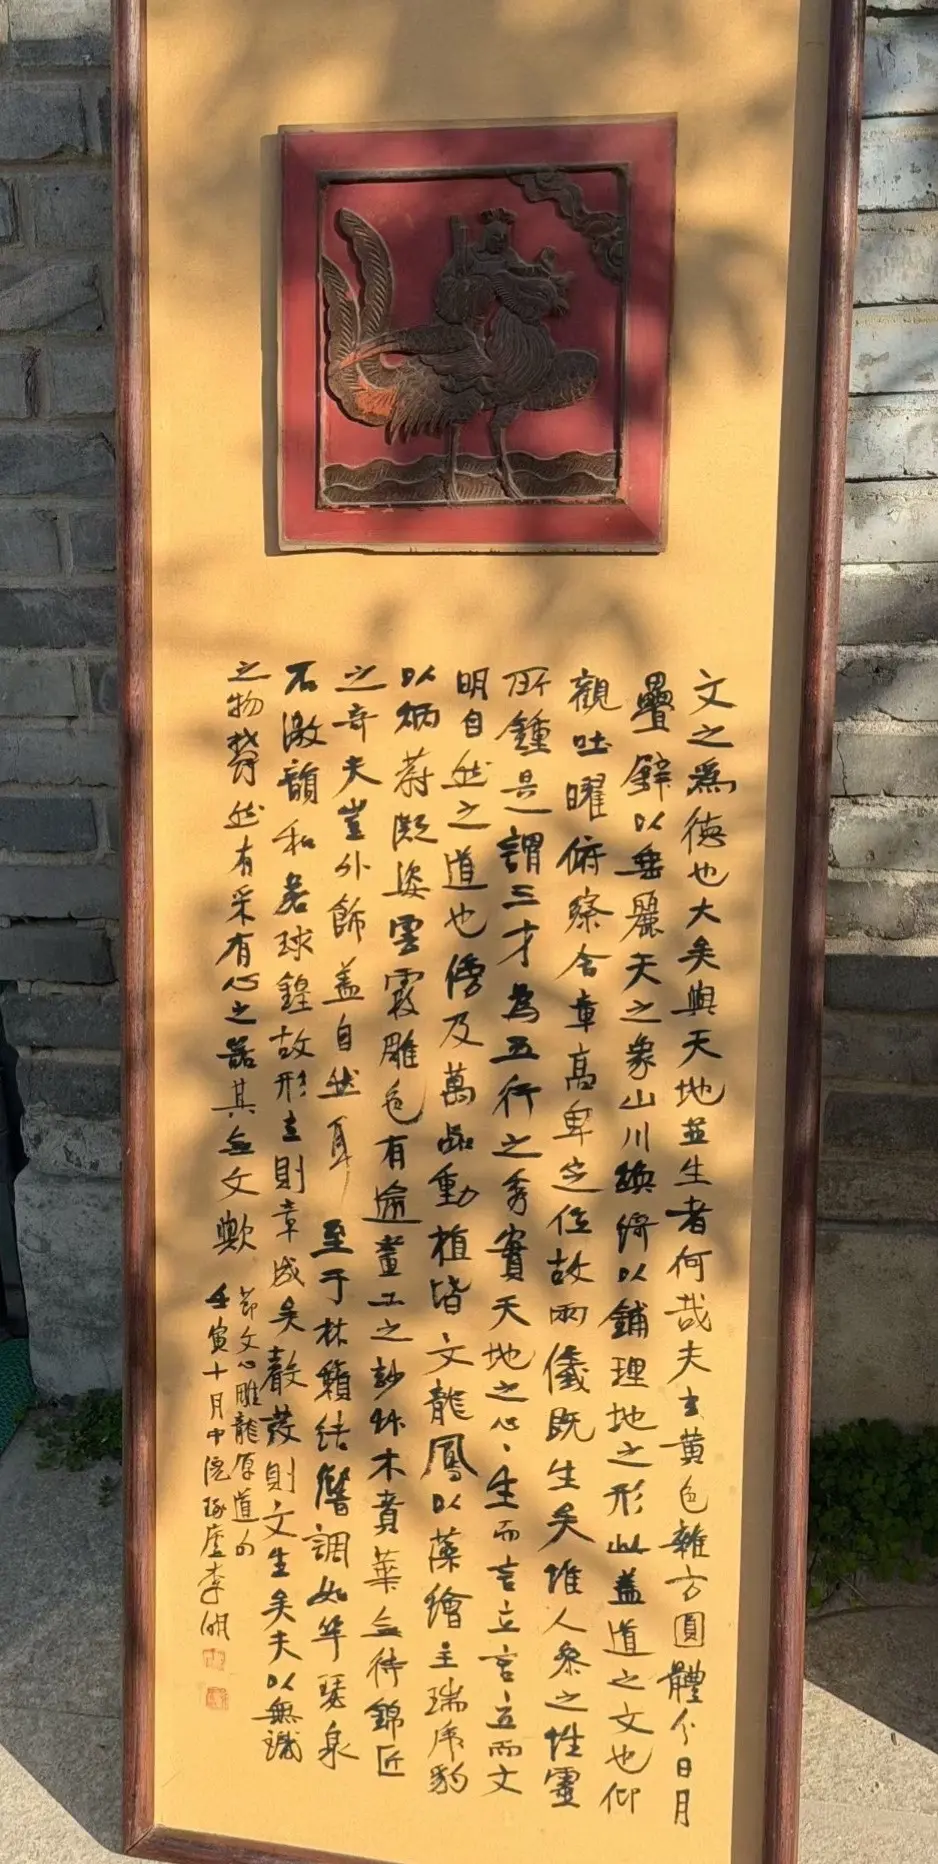 文之為德也大矣與天地並生者何哉夫玄黃色雜方圓體分日月
疊璧以垂麗天之象山川煥綺以鋪理地之形此蓋道之文也仰
觀吐曜俯察含章高卑定位故兩儀既生矣惟人參之性靈
所鍾是謂三才為五行之秀實天地之心心生而言立言立而文
明自然之道也傍及萬品動植皆文龍鳳以藻繪呈瑞虎豹
以炳蔚凝姿雲霞雕色有逾畫工之妙草木賁華無待錦匠
之奇夫豈外飾蓋自然耳至于林籟結響調如竽瑟泉
石激韻和若球鍠故形立則章成矣聲發則文生矣夫以無識
之物鬱然有采有心之器其無文歟
節文心雕龍原道句
壬寅十月中浣琢廬李